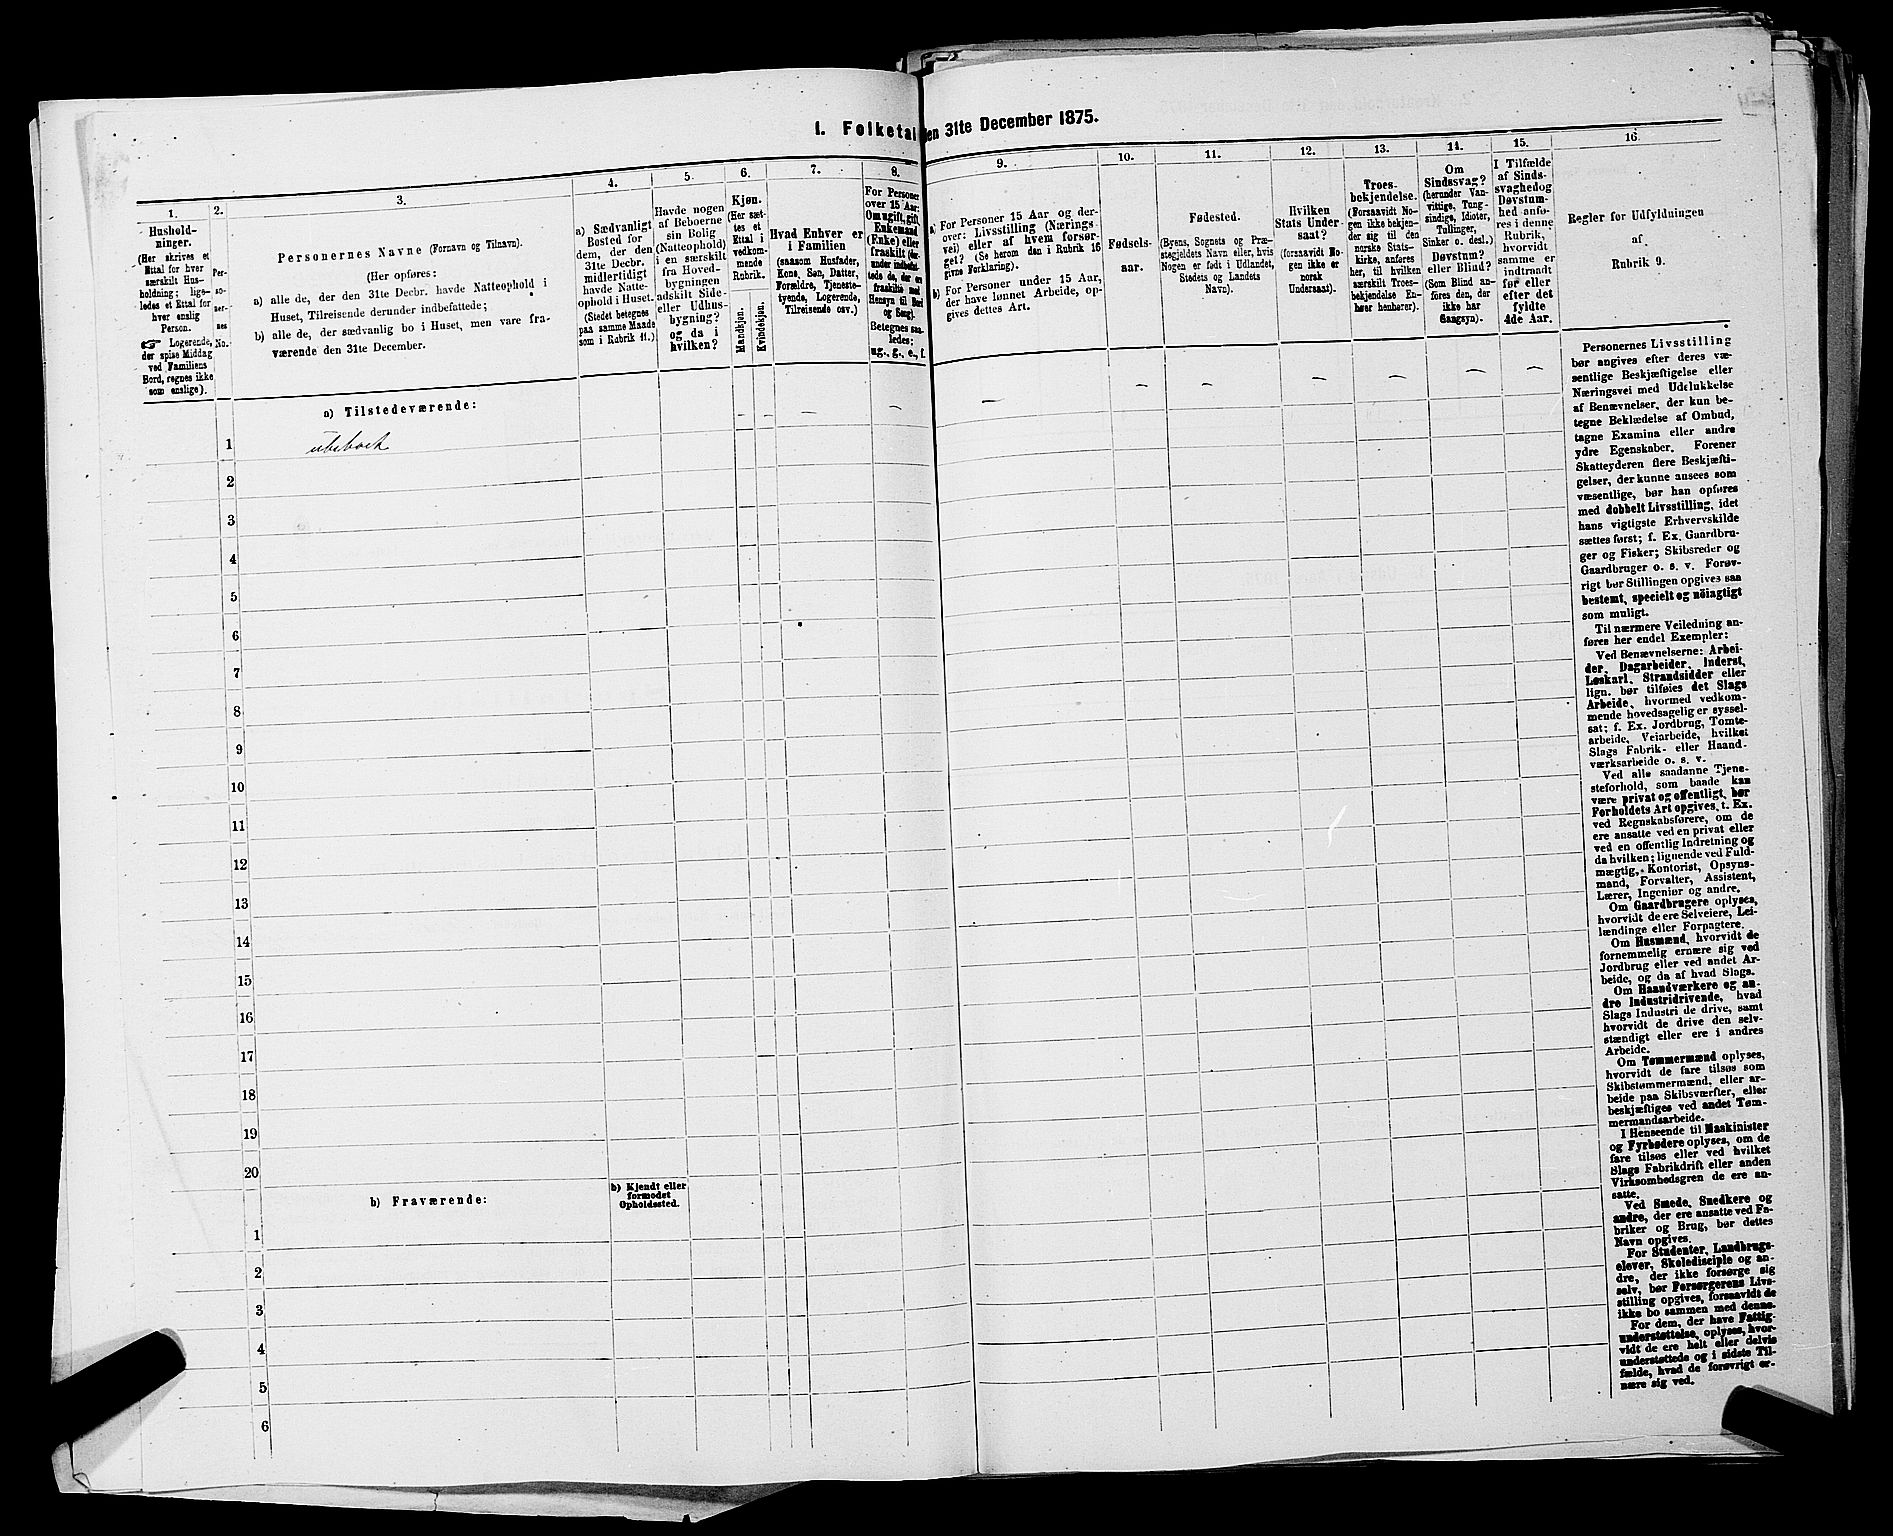 I. Folketal den 31te December 1875.
1.
Hushold-
ninger.
(Her skrives et
Ettal for hver
særskilt Hus-
holdning; lige-
ledes et Ettal for
hver enslig
Person.
☞ Logerende,
der spise Middag
ved Familiens
Bord, regnes ikke
som enslige).
2.
Per-
so-
ner-
nes
No.
3.
Personernes Navne (Fornavn og Tilnavn).
(Her opføres:
a) alle de, der den 31te Decbr. havde Natteophold i
Huset, Tilreisende derunder indbefattede;
b) alle de, der sædvanlig bo i Huset, men vare fra-
værende den 31te December.
4.
a) Sædvanligt
Bosted for
dem, der den
31te Decbr.
midlertidigt
havde Natte-
ophold i Huset.
(Stedet betegnes
paa samme Maade
som i Rubrik 11.)
5.
Havde nogen
af Beboerne
sin Bolig
(Natteophold)
i en særskilt
fra Hoved-
bygningen
adskilt Side-
eller Udhus-
bygning?
og da i
hvilken?
6.
Kjøn.
(Her sæt-
tes et
Ettal i
vedkom-
mende
Rubrik.
Mandkjøn.
Kvindekjøn.
7.
Hvad Enhver er
i Familien
(saasom Husfader,
Kone, Søn, Datter,
Forældre, Tjeneste-
tyende, Logerende,
Tilreisende osv.)
8.
For Personer
over 15 Aar:
Om ugift, gift,
Enkemand
(Enke) eller
fraskilt (der-
under indbefat-
tede de, der ere
fraskilte med
Hensyn til Bord
og Seng).
Betegnes saa-
ledes:
ug., g., e., f.
9.
a) For Personer 15 Aar og der-
over: Livsstilling (Nærings-
vei) eller af hvem forsør-
get? (Se herom den i Rubrik 16
givne Forklaring).
b) For Personer under 15 Aar,
der have lønnet Arbeide, op-
gives dettes Art.
10.
Fødsels-
aar.
11.
Fødested.
(Byens, Sognets og Præ-
stegjeldets Navn eller, hvis
Nogen er født i Udlandet,
Stedets og Landets
Navn).
12.
Hvilken
Stats Under-
saat?
(forsaavidt No-
gen ikke er
norsk
Undersaat).
13.
Troes-
bekjendelse.
(Forsaavidt No-
gen ikke bekjen-
der sig til den
norske Stats-
kirke, anføres
her, til hvilken
særskilt Troes-
bekjendelse En-
hver henhører).
14.
Om
Sindssvag?
(herunder Van-
vittige, Tung-
sindige, Idioter,
Tullinger,
Sinker o. desl.)
Døvstum?
eller Blind?
(Som Blind an-
føres den, der
ikke har
Gangsyn).
15.
I Tilfælde
af Sinds-
svaghed og
Døvstum-
hed anfø-
res i denne
Rubrik,
hvorvidt
samme er
indtraadt
før eller
efter det
fyldte
4de Aar.
16.
Regler for Udfyldningen
af
Rubrik 9.
Personernes Livsstilling
bør angives efter deres væ-
sentlige Beskjæftigelse eller
Næringsvei med Udelukkelse
af Benævnelser, der kun be-
tegne Beklædelse af Ombud,
tagne Examina eller andre
ydre Egenskaber. Forener
Skatteyderen flere Beskjæfti-
gelser, der kunne ansees som
væsentlige, bør han opføres
med dobbelt Livsstilling, idet
hans vigtigste Erhvervskilde
sættes først; f. Ex. Gaardbru-
ger og Fisker; Skibsreder og
Gaardbruger o. s. v. Forøv-
rigt bør Stillingen opgives saa
bestemt, specielt og nøiagtigt
som muligt.
Til nærmere Veiledning an-
føres her endel Exempler:
Ved Benævnelserne: Arbei-
der, Dagarbeider, Inderst,
Løskarl, Strandsidder eller
lign. bør tilføies det Slags
Arbeide, hvormed vedkom-
mende hovedsagelig er syssel-
sat; f. Ex. Jordbrug, Tomte-
arbeide, Veiarbeide, hvilket
Slags Fabrik- eller Haand-
værksarbeide o. s. v.
Ved alle saadanne Tjene-
steforhold, som baade kan
være privat og offentligt, bør
Forholdets Art opgives, t. Ex.
ved Regnskabsførere, om de
ere ansatte ved en privat eller
ved en offentlig Indretning og
da hvilken; lignende ved Fuld-
mægtig, Kontorist, Opsyns-
mand, Forvalter, Assistent,
Lærer, Ingeniør og andre.
Om Gaardbrugere oplyses,
hvorvidt de ere Selveiere, Lei-
lændinge eller Forpagtere.
Om Husmænd, hvorvidt de
fornemmelig ernære sig ved
Jordbrug eller ved andet Ar-
beide, og da af hvad Slags.
Om Haandværkere og an-
dre Industridrivende, hvad
Slags Industri de drive, samt
hvorvidt de drive den selv-
stændigt eller ere i andres
Arbeide.
Om Tømmermænd oplyses,
hvorvidt de fare tilsøs som
Skibstømmermænd, eller ar-
beide paa Skibsværfter, eller
beskjæftiges ved andet Tøm-
mermandsarbeide.
I Henseende til Maskinister
og Fyrbødere oplyses, om de
fare tilsøs eller ved hvilket
Slags Fabrikdrift eller anden
Virksomhedsgren de ere an-
satte.
Ved Smede, Snedkere og
andre, der ere ansatte ved Fa-
briker og Brug, bør dettes
Navn opgives.
For Studenter, Landbrugs-
elever, Skoledisciple og an-
dre, der ikke forsørge sig
selv, bør Forsørgerens Livs-
stilling opgives, forsaavidt de
ikke bo sammen med denne.
For dem, der have Fattig-
understøttelse, oplyses, hvor-
vidt de ere helt eller delvis
understøttede og i sidste Til-
fælde, hvad de forøvrigt er-
nære sig ved.
a) Tilstedeværende:
1 ubeboet
2
3
4
5
6
7
8
9
10
11
12
13
14
15
16
17
18
19
20
b) Fraværende:
b) Kjendt eller
formodet
Opholdssted.
1
2
3
4
5
6